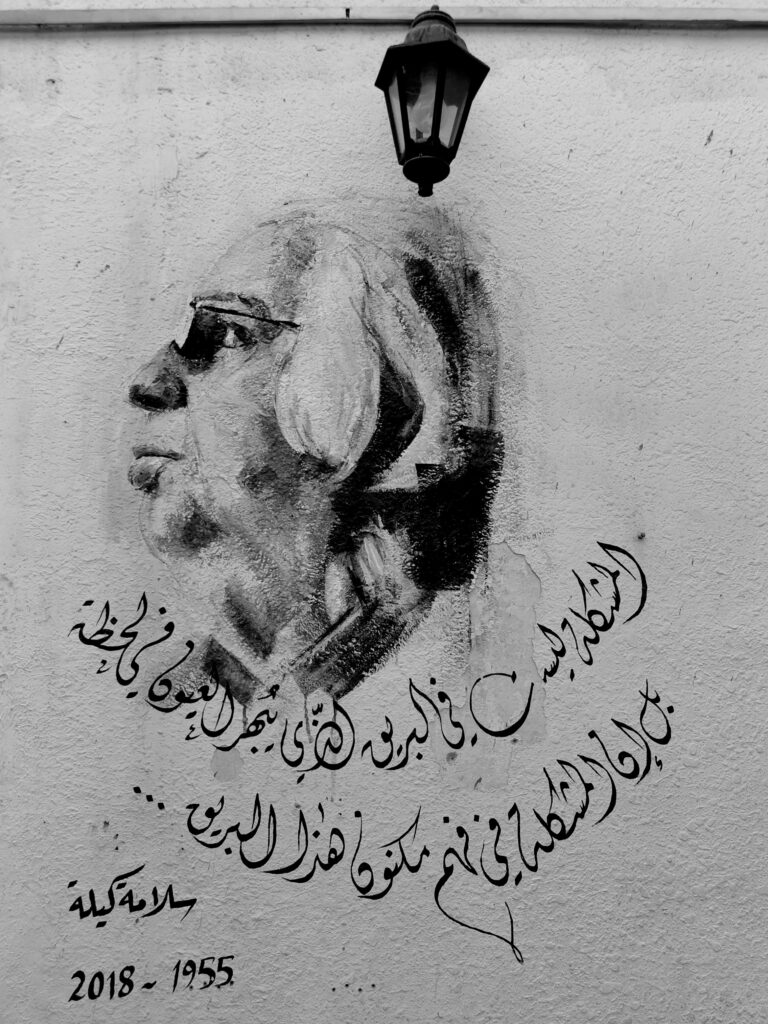 المشكلة ليست في البريق الذّي يُبهر العيون في لحظة
بل إن المشكلة في فهم مكنون هذا البريق ...
سلامة كيلة
1955 - 2018